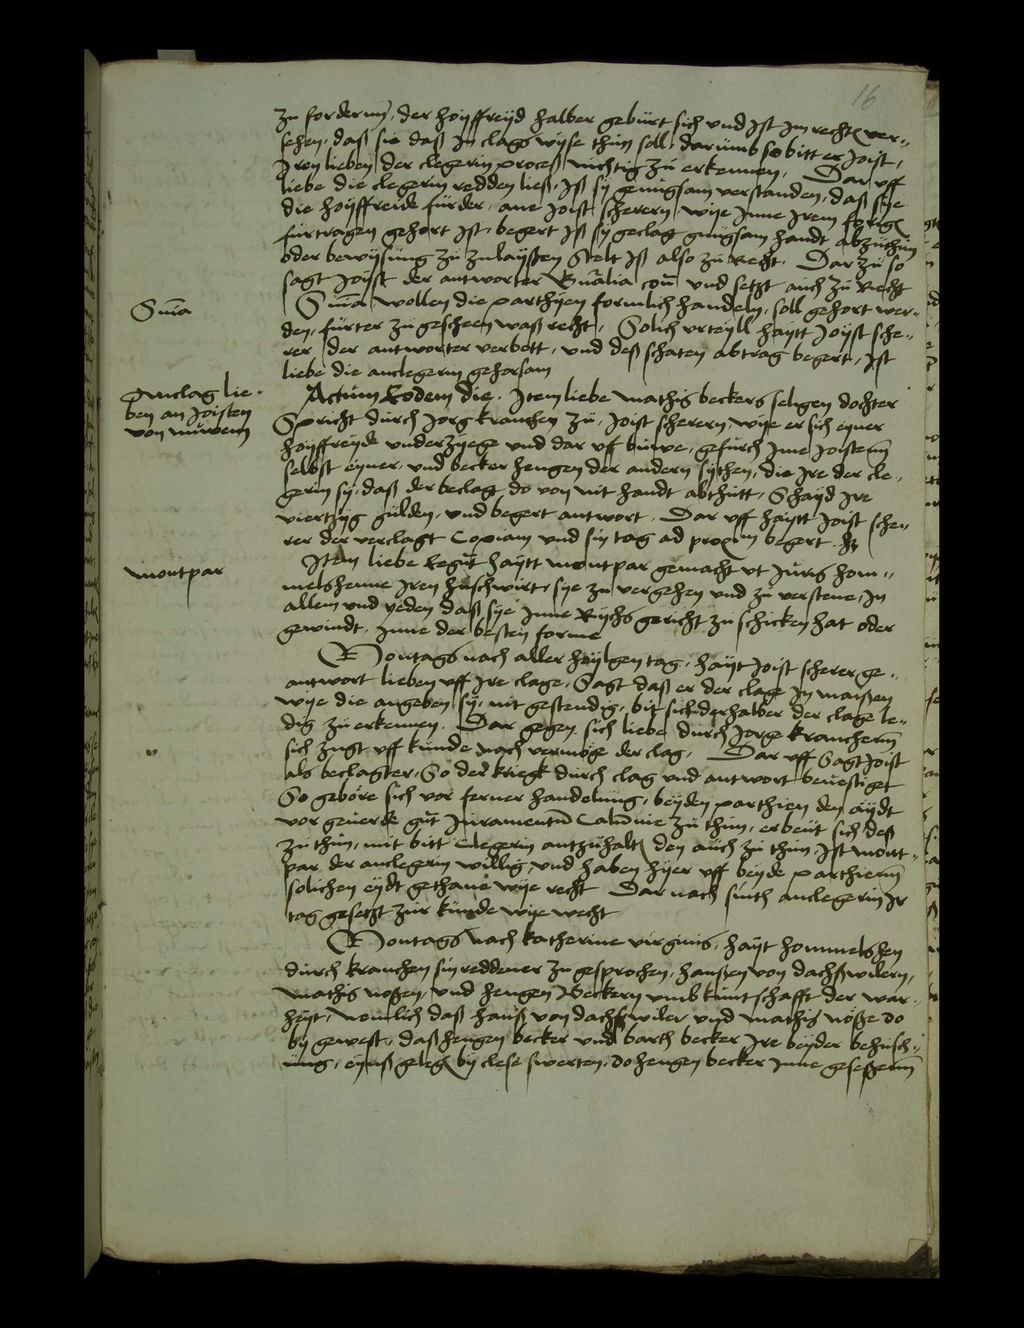 16
zu fordern, der hoyffreyd halber geburt sich und Ist Im rechtē ver-
sehen, daß sie daß In clags wyse thun soll, darumb so bitt er Joist,
Iren lieben der clegerin proceß nichtig zu erkennen. Dar uff
liebe die clegerin redden ließ, Ist sy genugsam verstanden, daß sye
die hoyffreide furder, ane Joist scherern, wye Inne Irem forigē
furtragen gehort Ist, begert Ist sy geclag gnugsam handt abzuthun
oder bewysung zu zulayßen Stelt Ist also zu Recht. Dar zu so
sagt Joyst der antworter gnālia con und setzt auch zu Recht
Snīa
Snīa wollen die parthyen formlich handeln, soll gehort wer-
den, furter zu gescheen waß recht, Solich urteyll haytt Joyst sche-
rer der antworter verbott, und deß schaten abtrag begert, Ist
liebe die anclegerin gehorsam
Anclag lie-
ben an Joisten
von nuwem
Actum Eodem die. Item liebe mathis beckers seligen dochter
Spricht durch Jorg kranchen zu, Joist scherern, wye er sich eyner
hoyffreyde underzyege und dar uff buwe, gefurch Inne Joistenn
selbst eyner, und becker hengen der andern sythen, die Ire der cle-
gerin sy, daß der beclag do von nit handt abthutt, Schayd Ire
viertzyg gulden, und begert antwort. Dar uff haytt Joist sche-
rer der verclagt Copiam und sin tag ad proxm begert.
montpar
Item liebe legut haytt montpar gemacht ut Juris hom-
melshenne Iren huschwirt, sye zu vergehen und zu verstene, In
allem und yeden daß sye Inne Rychs gericht zu schicken hat oder
gewindt, Inne der besten forme
Montags nach aller heylgen tag, hayt Joist scherer ge-
antwort lieben uff Ire clage, Sagt daß er der clage In maißen
wye die angeben sy, nit gestendig, bit sich derhalber der clage le-
dig zu erkennen. Dar gegen sich liebe durch Jorge kranchenn
sich zugt uff kunde nach vermoge der clag. Dar uff Sagt Joist
als beclagter, So der kriegk durch clag und antwort bevestiget
So gebore sich vor ferner handelung, beyden parthien den aydt
vor geverde gnt Juramentū Calūnie zu thun, erbeut sich deß
zu thun, mit bitt clegerin antzuhaltē den auch zu thun, Ist mont-
par der anclegerin willig, und haben hyer uff beyde parthienn
solichen eydt gethane wye recht Dar nach sinth anclegerin Ir
tag gesetzt zur kunde wye recht
Montags nach katherine virginis, hayt hommelshen
durch kranchen sin reddener zu gesprochen, hanßen von dachßwilern,
mathis noßen, und hengen Beckern umb kuntschafft der war-
heyt, nemlich daß hanß von dachßwiler und mathis noße do
by gewest, daß hengen becker und barth becker Ire beyder behusch-
ung, eynß gelegē by clese swerten, do hengen becker Inne geseßenn